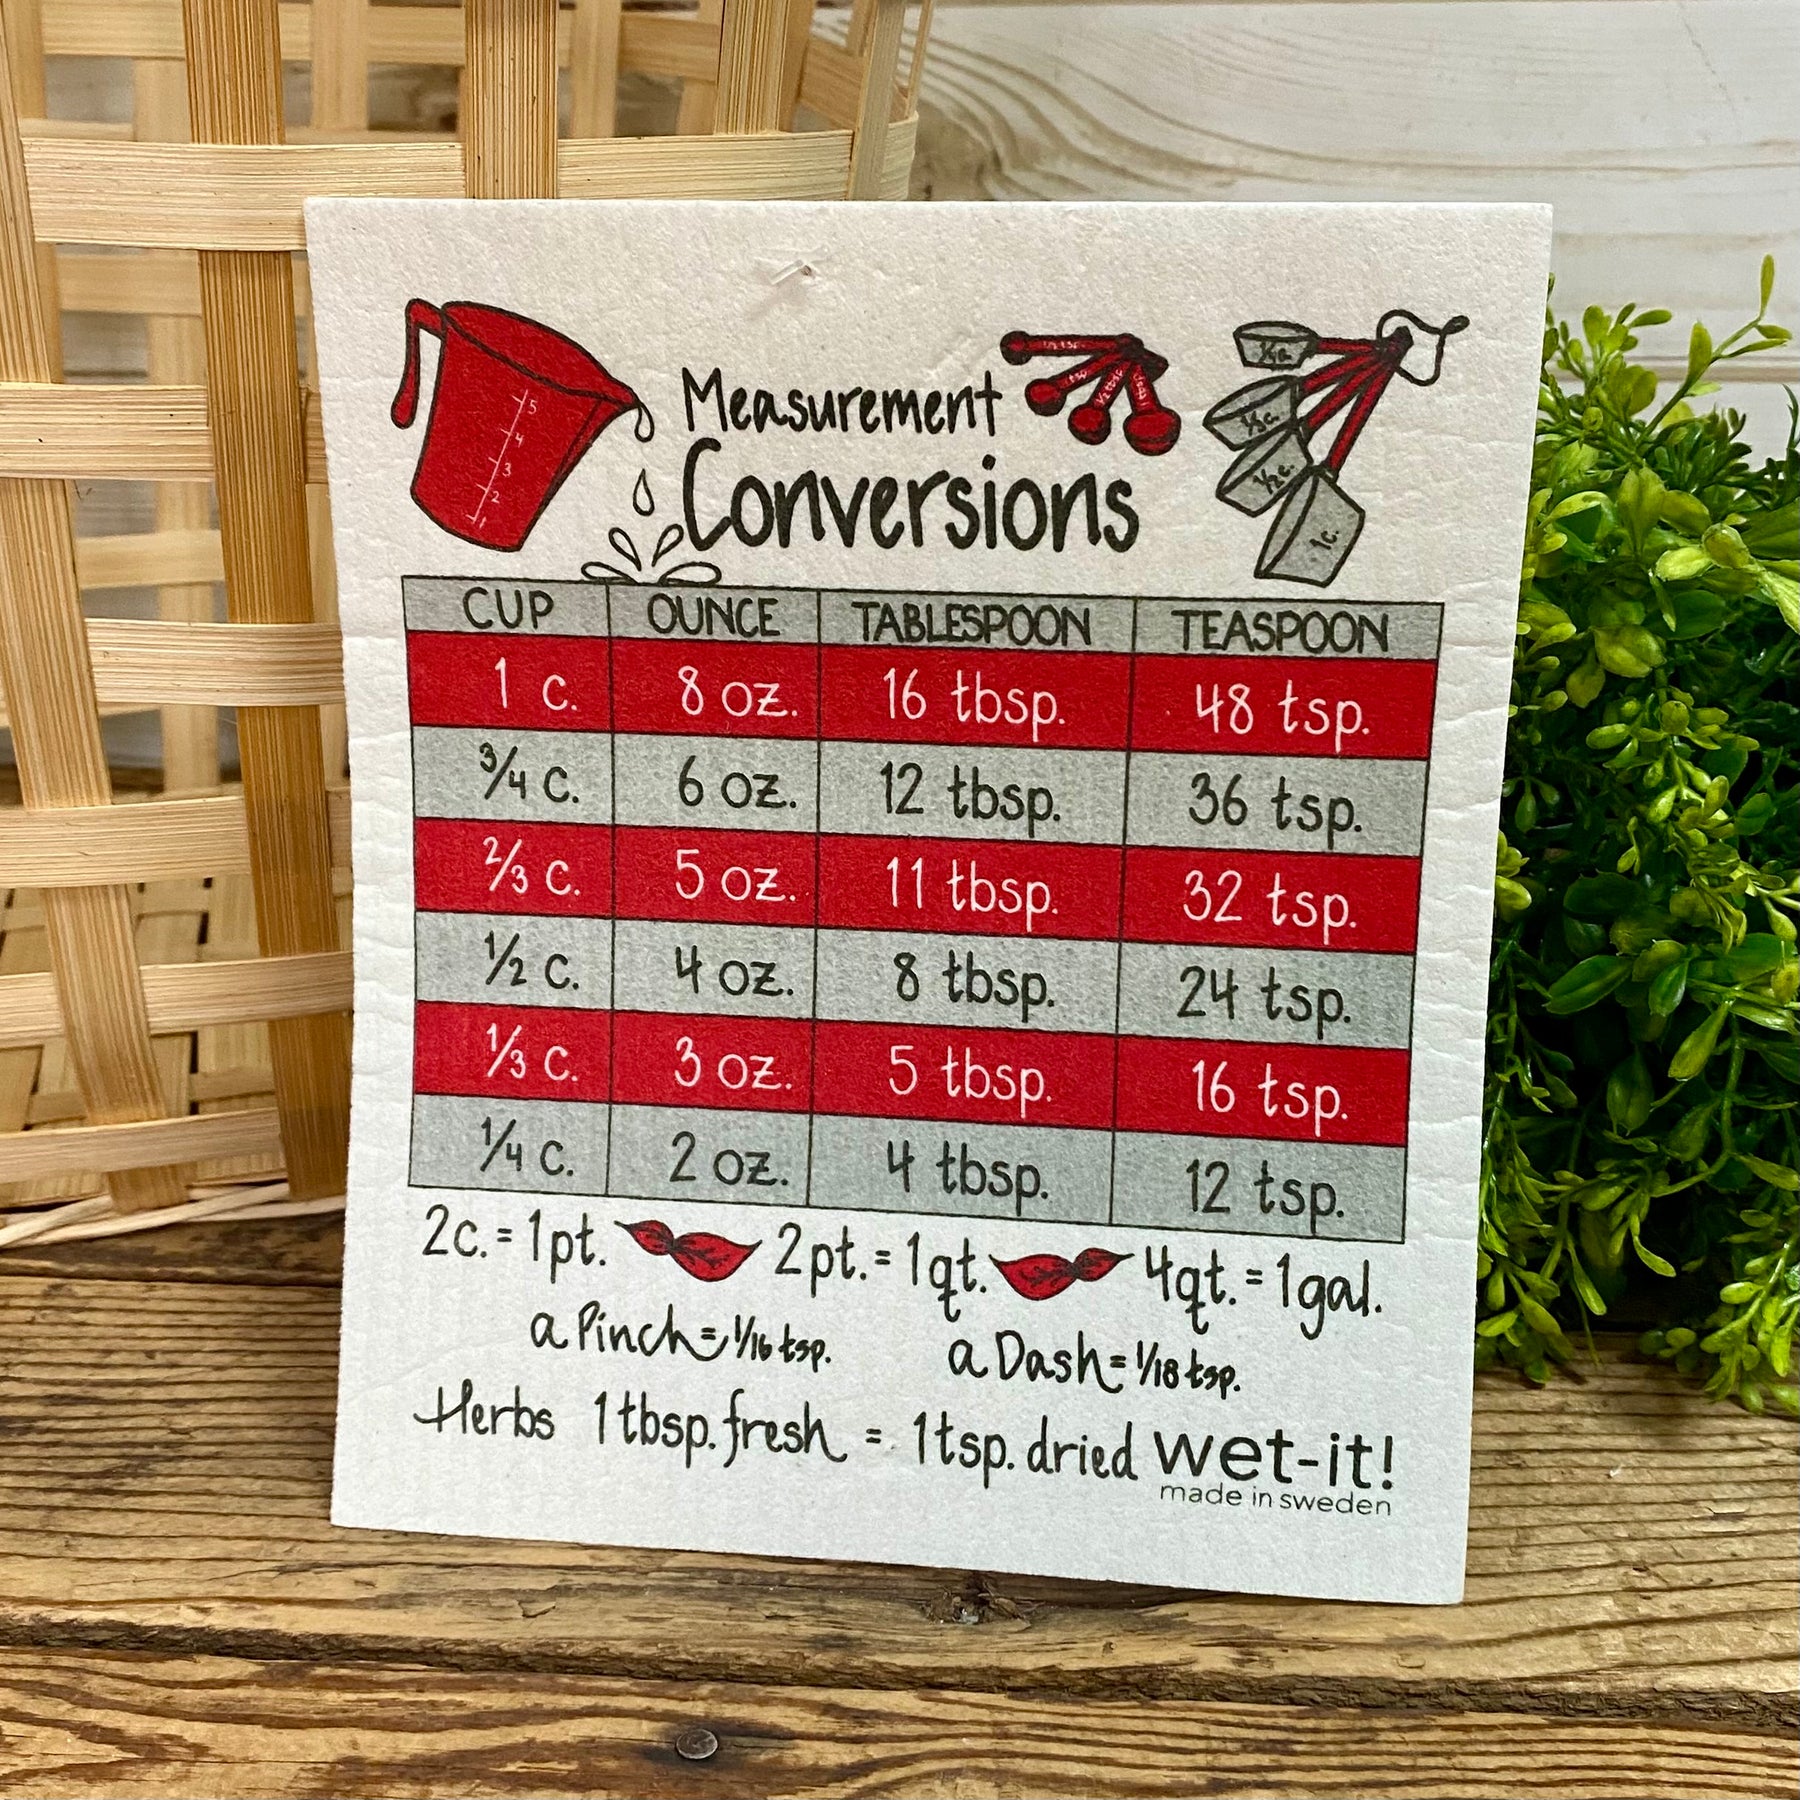 5
4
3
2
1
Measurement
Conversions
1/4c.
1/3c.
1/2c.
1c.
CUP OUNCE TABLESPOON TEASPOON
1 c. 8 oz. 16 tbsp. 48 tsp.
3/4 c. 6 oz. 12 tbsp. 36 tsp.
2/3 c. 5 oz. 11 tbsp. 32 tsp.
1/2 c. 4 oz. 8 tbsp. 24 tsp.
1/3 c. 3 oz. 5 tbsp. 16 tsp.
1/4 c. 2 oz. 4 tbsp. 12 tsp.
2c.=1pt. 2pt.=1qt. 4qt.=1gal.
a Pinch=1/16 tsp. a Dash=1/18 tsp.
Herbs 1tbsp. fresh = 1tsp. dried wet-it!
made in sweden